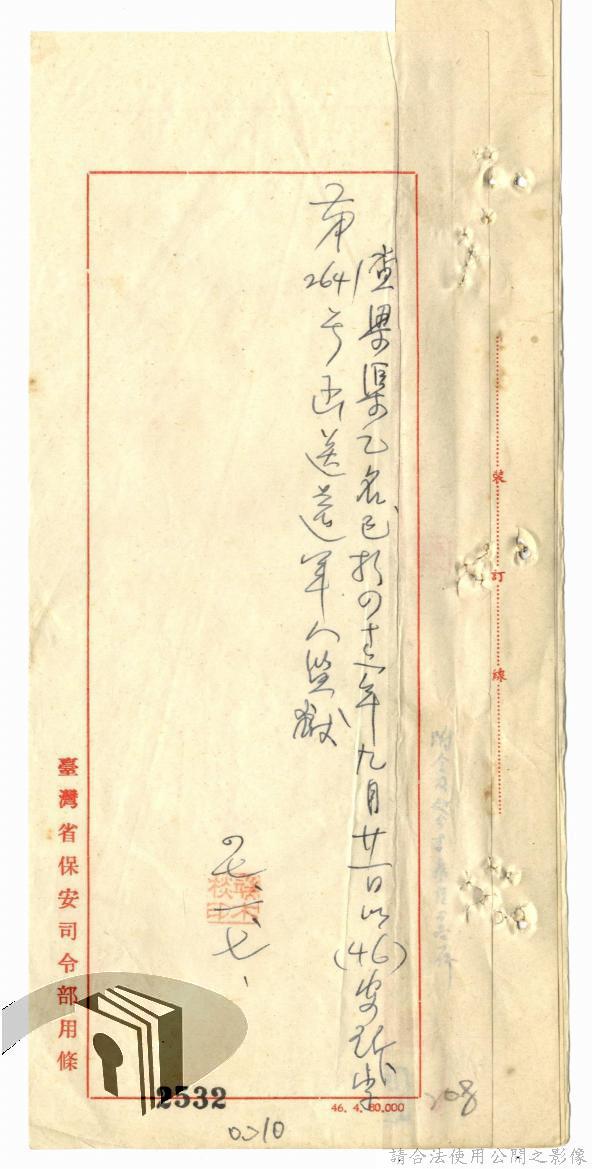 裝訂線
查梁渠乙名已於四十六年九月廿一日以(46)安珍字
第2641號函送臺軍人監獄
臺灣省保安司令部用條
2532
46. 4. 80.000
208
請合法使用公開之影像